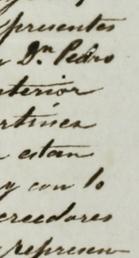 presentes
Dn. Pedro
terior
rtinez
estan
y con lo
creedores
represen